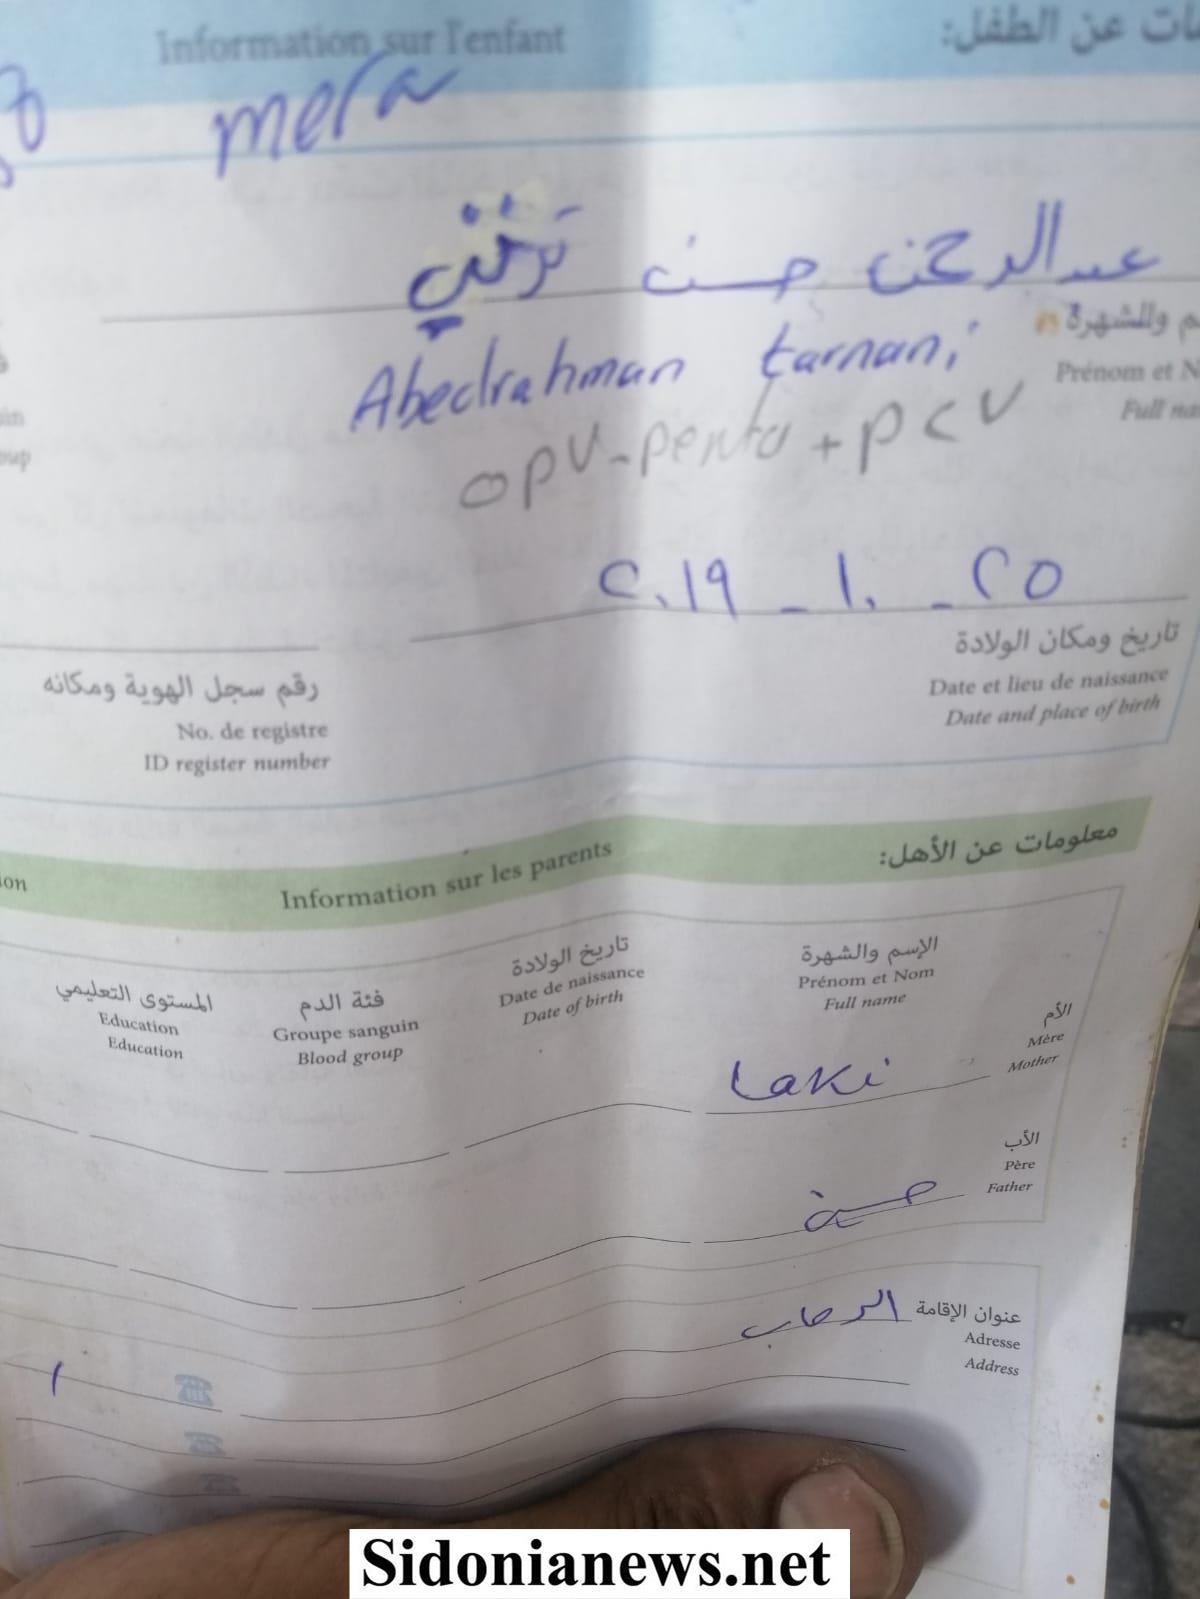 Information sur l'enfant
عن الطفل:
mera
عبدالرحمن حسن
Abedrahman tarnani
والشهرة
Prénom et N
Full na
opv-penta + PCV
٢٥ - ١٠ - ٢٠١٩
تاريخ ومكان الولادة
Date et lieu de naissance
Date and place of birth
رقم سجل الهوية ومكانه
No. de registre
ID register number
معلومات عن الأهل:
Information sur les parents
الإسم والشهرة
Prénom et Nom
Full name
تاريخ الولادة
Date de naissance
Date of birth
فئة الدم
Groupe sanguin
Blood group
المستوى التعليمي
Education
Education
الأم
Mère
Mother
Laki
الأب
Père
Father
حسن
عنوان الإقامة
Adresse
Address
الرحاب
Sidonianews.net